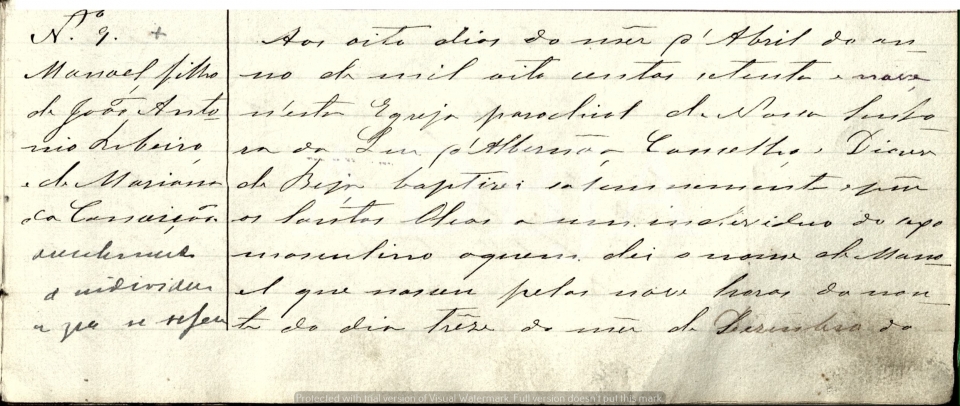 N.º 9. +
Manoel, filho
de João Anto-
nio Ribeiro,
e de Marianna
da Conceição.
o individuo
a que se refere
Aos oito dias do mez d'Abril do an-
no de mil oito centos setenta e nove
n'esta Egreja parochial de Nossa Senho-
ra da Luz d'Albernôa, Concelho e Diocese
de Beja baptizei solemnemente e puz
os Santos Oleos a um individuo do sexo
masculino a quem dei o nome de Mano-
el que nasceu pelas nove horas da noi-
te do dia trêze do mez de Dezembro do
Protected with trial version of Visual Watermark. Full version doesn't put this mark.